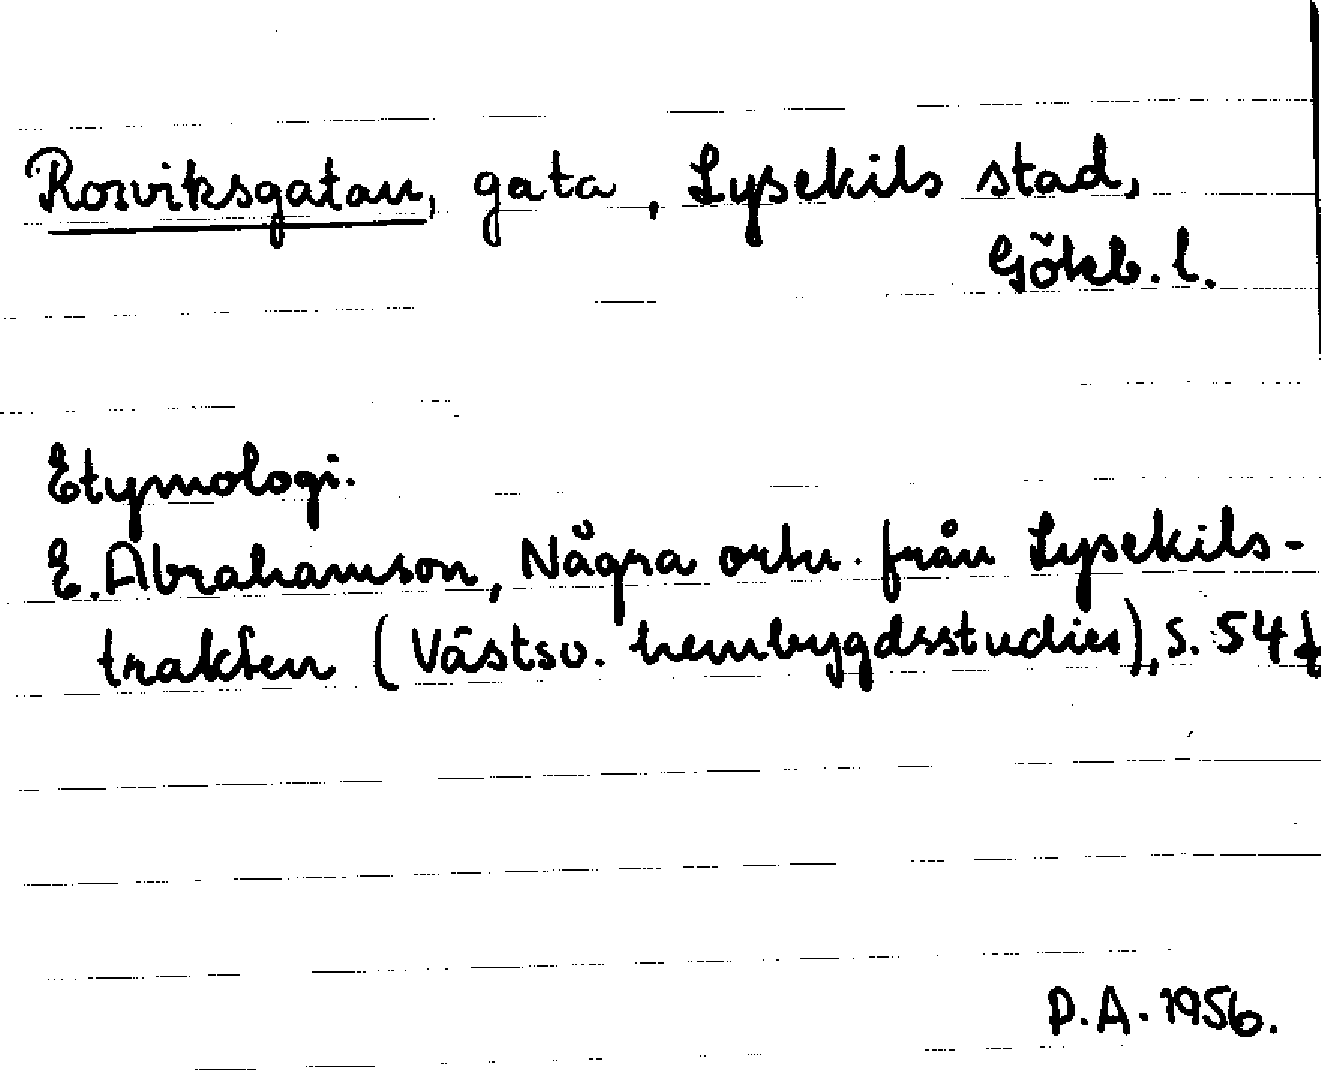 Rosviksgatan, gata, Lysekils stad,
Göteb. l.
Etymologi.
E. Abrahamson, Några ortn. från Lysekils-
trakten (Västsv. hembygdsstudier), s. 54 f
D.A. 1956.